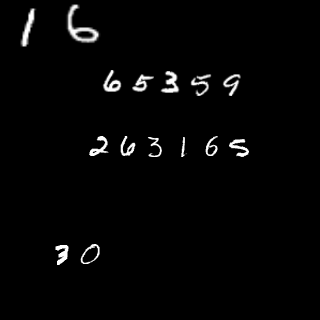 16
65359
263165
30